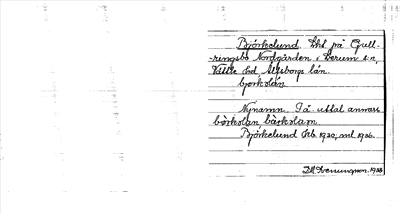 Björkelund. Lht. på Gull-
ringsbo Nordgården i Lerum sn,
Vättle hd Älfsborgs län.
björkolan
Nynamn. Så uttal annars
börkolan bärkolan.
Björkelund Jrb. 1920, 1926.
1933